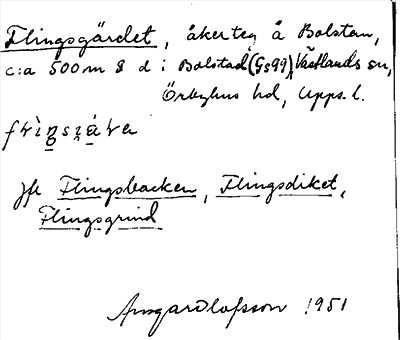 Flingsgärdet, åkerteg å Bolstan,
c:a 500 m S d i Bolstad (Gs99), Västlands sn,
Örbyhus hd, Upps. l.
Jfr Flingsbacken, Flingsdiket,
Flingsgrind
Olofsson 1951